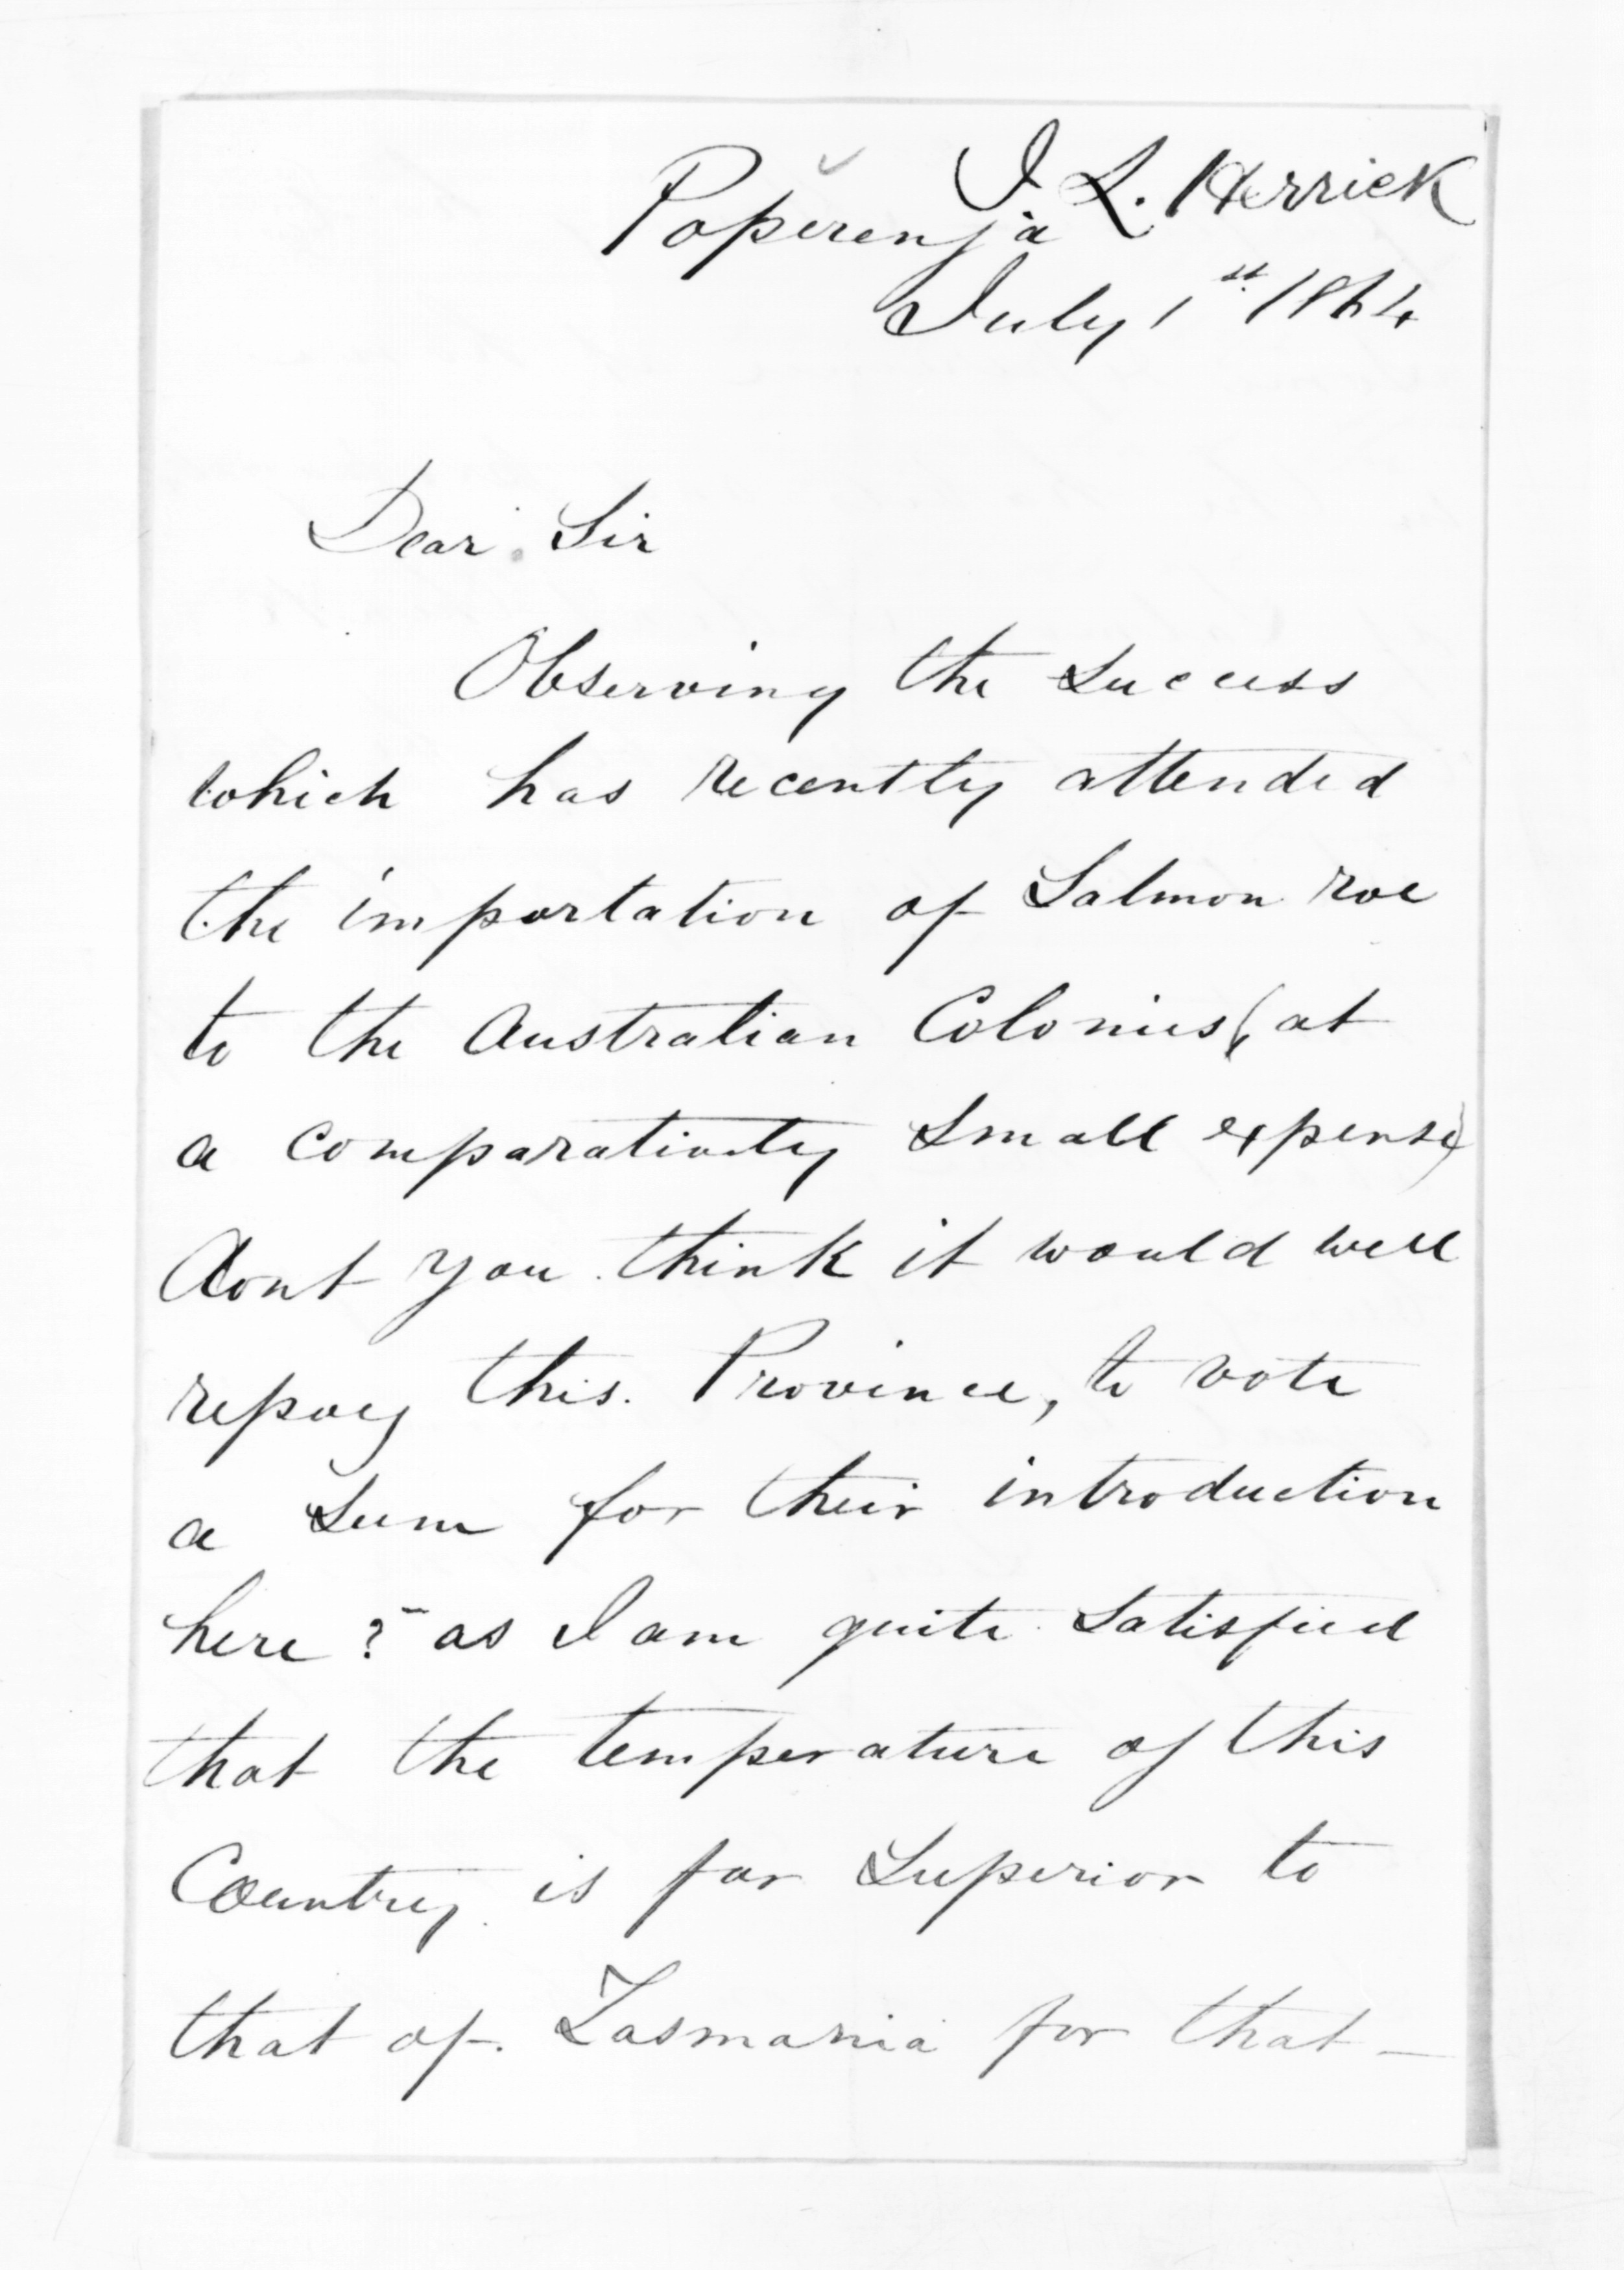 J. L. Herrick
Poperenja
July 1st 1864
Dear Sir
Observing the Success
which has recently attended
the importation of Salmon roe
to the Australian Colonies (at
a comparatively Small expense)
dont you think it would well
repay this Province, to vote
a Sum for their introduction
here? as I am quite Satisfied
that the temperature of this
Country is far Superior to
that of Tasmania for that —